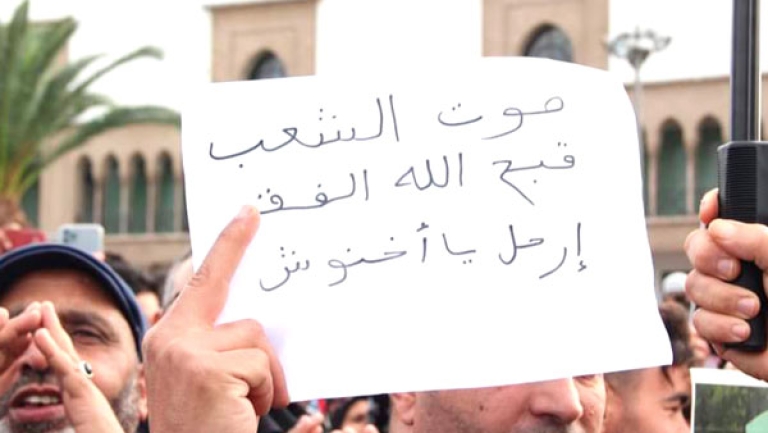 صوت الشعب
قبح الله الفقـ
إرحل يا أخنوش